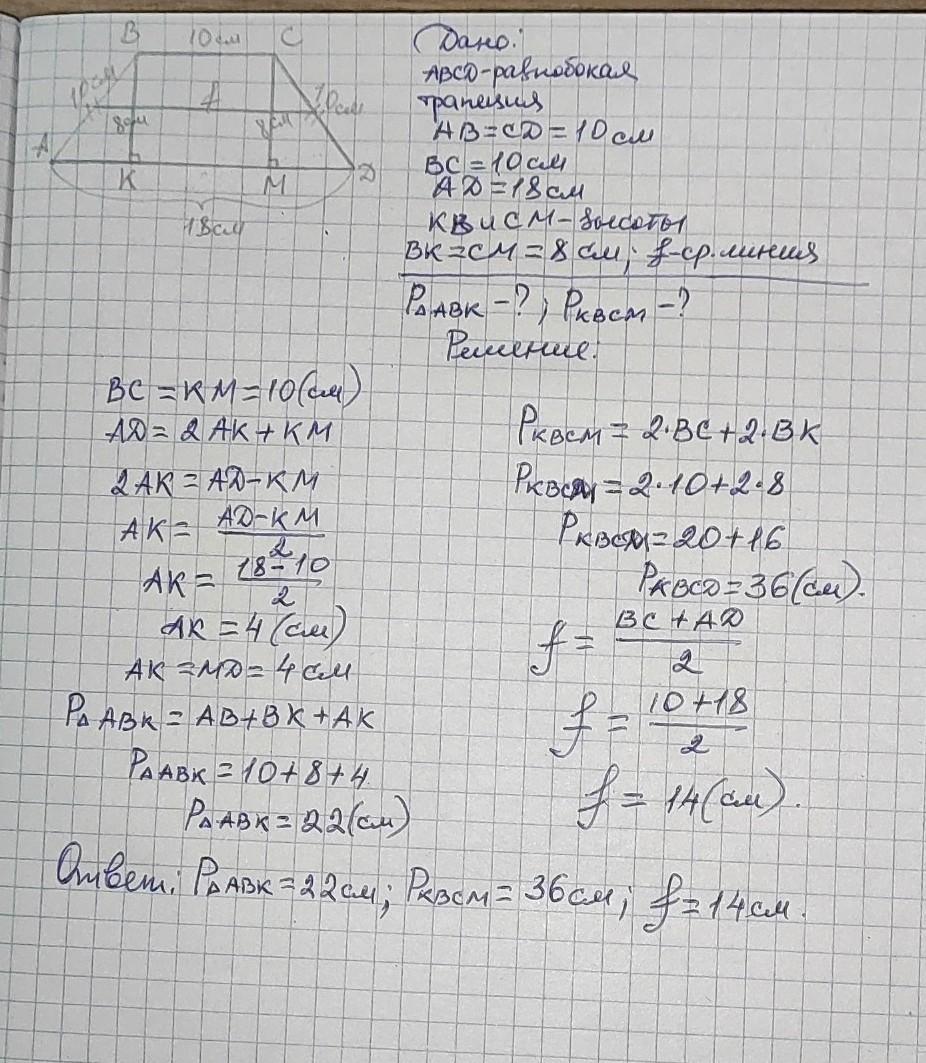 B 10см C
10см f 10см
8см 8см
A K M D
18см
Дано:
ABCD-равнобокая
трапеция
AB=CD=10см
BC=10см
AD=18см
KB и CM-высоты
BK=CM=8см; f-ср.линия
P△ABK-?; PKBCM-?
Решение:
BC=KM=10(см)
AD=2AK+KM
2AK=AD-KM
AK= AD-KM / 2
AK= 18-10 / 2
AK=4(см)
AK=MD=4см
P△ABK=AB+BK+AK
P△ABK=10+8+4
P△ABK=22(см)
PKBCM=2·BC+2·BK
PKBCM=2·10+2·8
PKBCM=20+16
PKBCD=36(см).
f= BC+AD / 2
f= 10+18 / 2
f=14(см).
Ответ: P△ABK=22см; PKBCM=36см; f=14см.